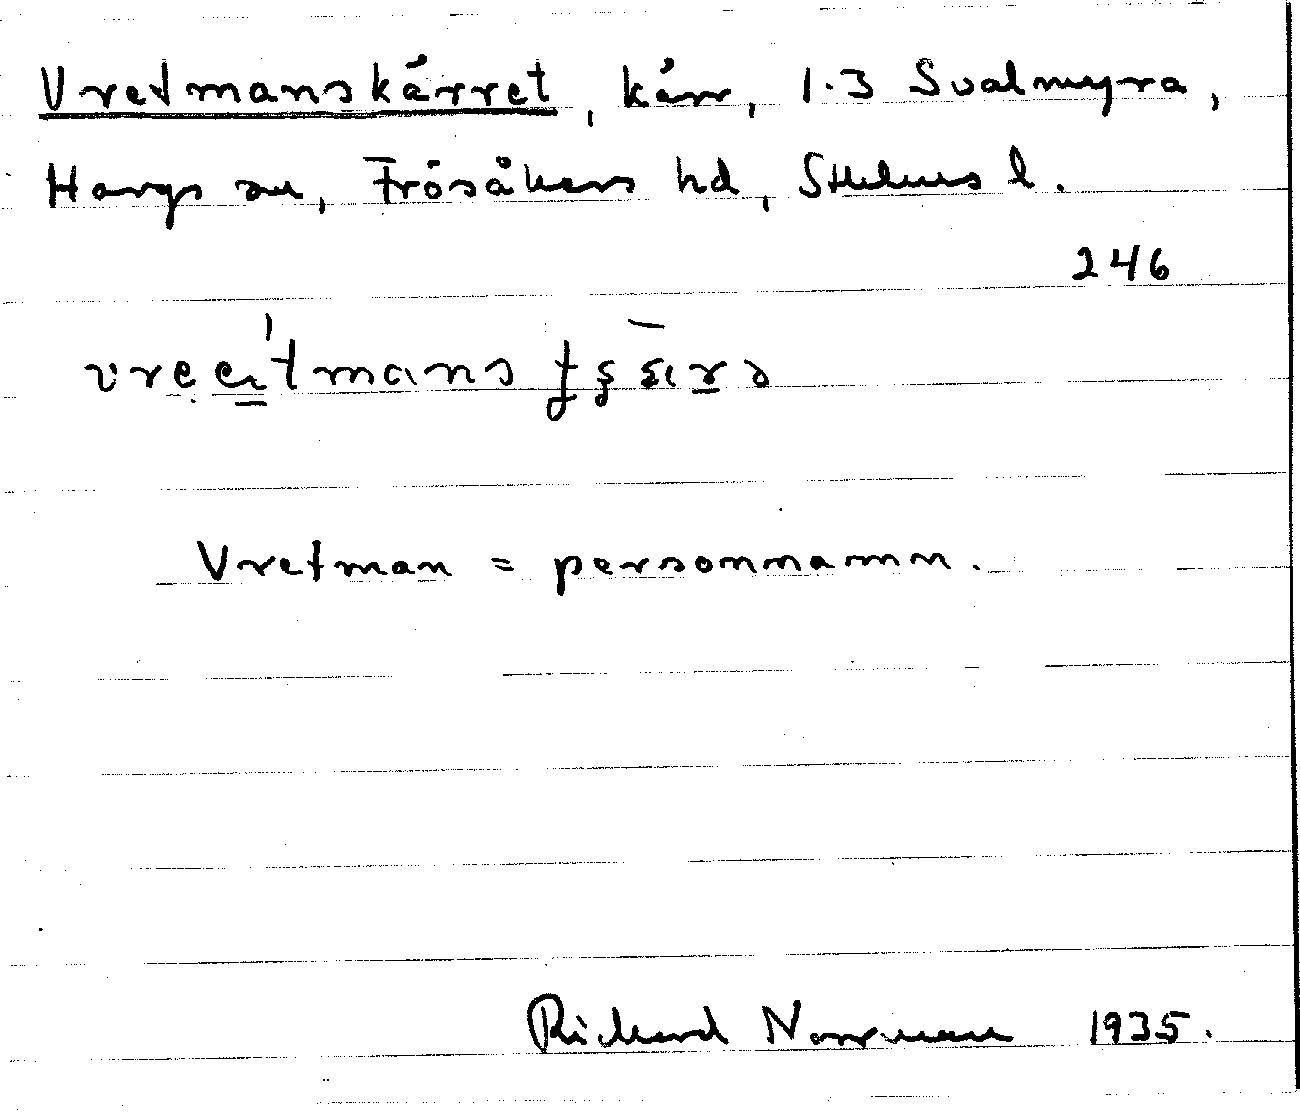 Vretmanskärret, kärr, 1.3 Svalmyra,
Hargs sn, Frösåkers hd, Sthlms l.
246
Vretman = personnamn.
Richard Norrman 1935.